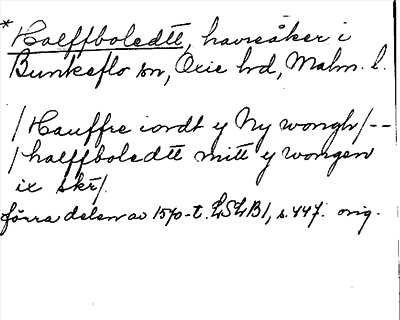 * Halffboledtt, havreåker i
Bunkeflo sn, Oxie hd, Malm. l.
/Hauffre iordt y Ny wongh/--
/halffboledtt mitt y wongen
ix skr/.
förra delen av 1570-t. LSLB1, s. 447. orig.